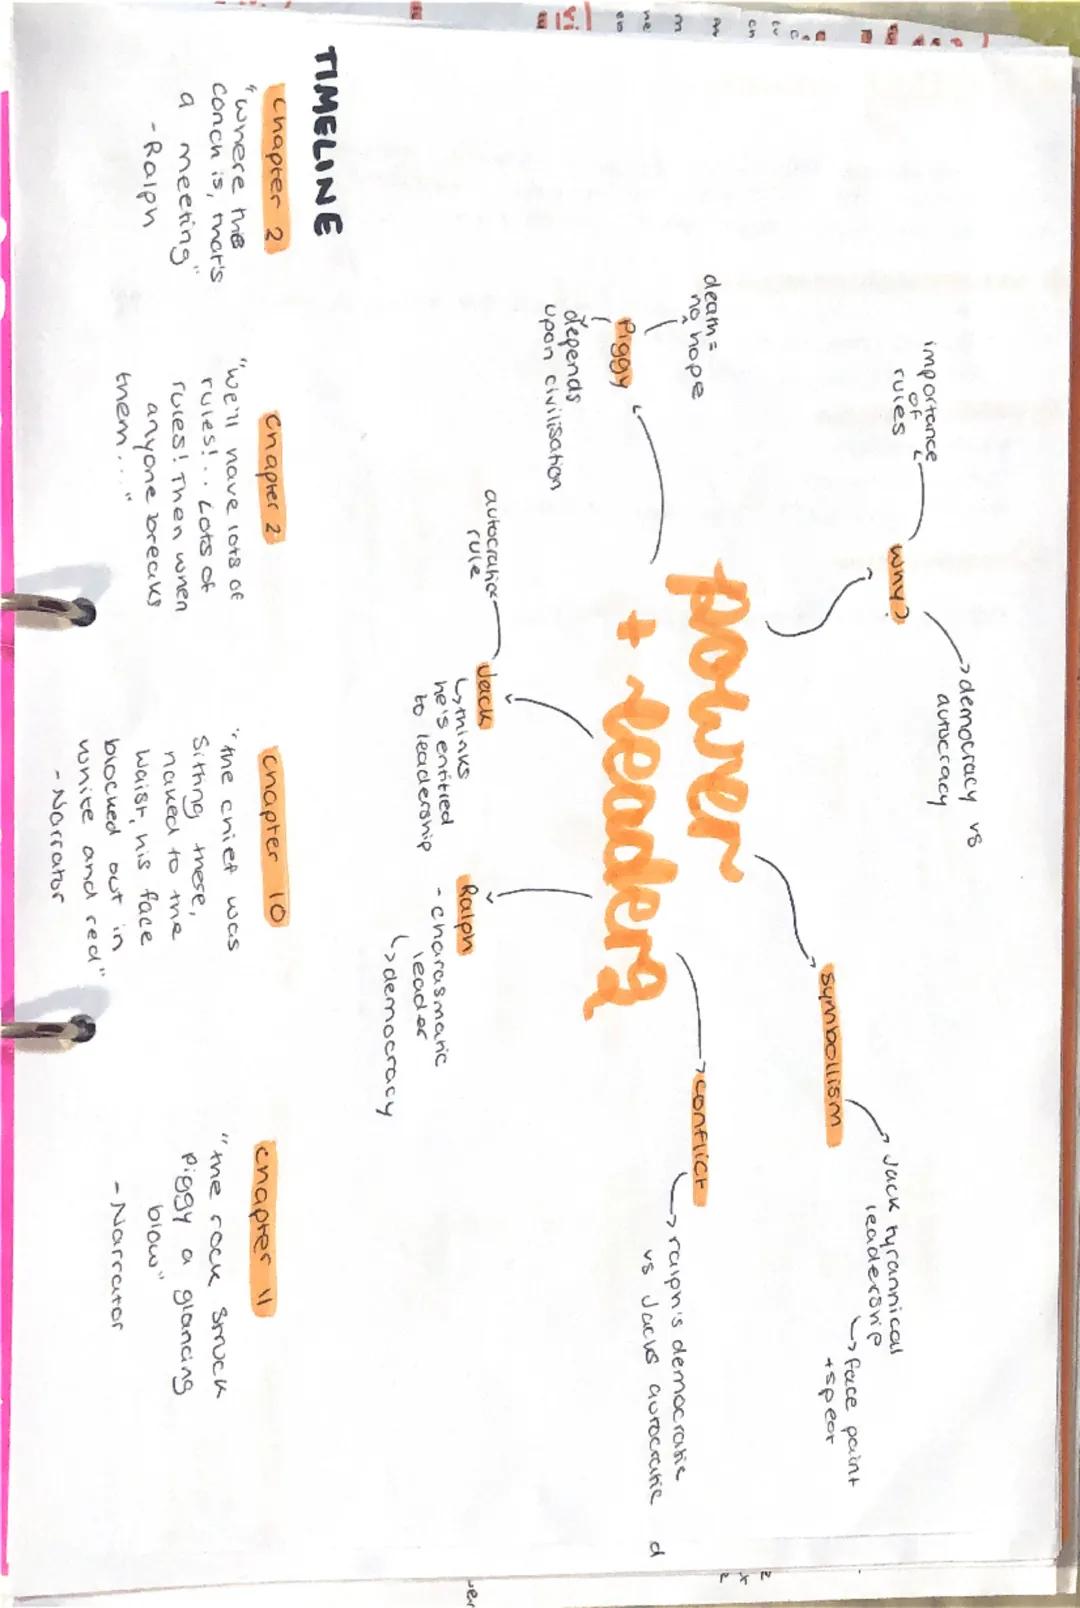 power
+ leaders
why?
importance
of
rules
democracy vs
autocracy
symbollism
Jack tyrannical
leadership
face paint
+ spear
conflict
ralph's democratic
vs Jacks autocratic
Piggy
death =
no hope
depends
upon civilisation
Jack
autocratic
rule
thinks
he's entitled
to leadership
Ralph
- charasmatic
leader
democracy
TIMELINE
chapter 2
"where the
conch is, that's
a meeting"
- Ralph
chapter 2
"we'll have lots of
rules!.. Lots of
rules! Then when
anyone breaks
them...."
chapter 10
"the chief was
sitting there,
naked to the
waist, his face
blocked out in
white and red"
- Narrator
chapter 11
"the rock struck
Piggy a glancing
blow"
- Narrator